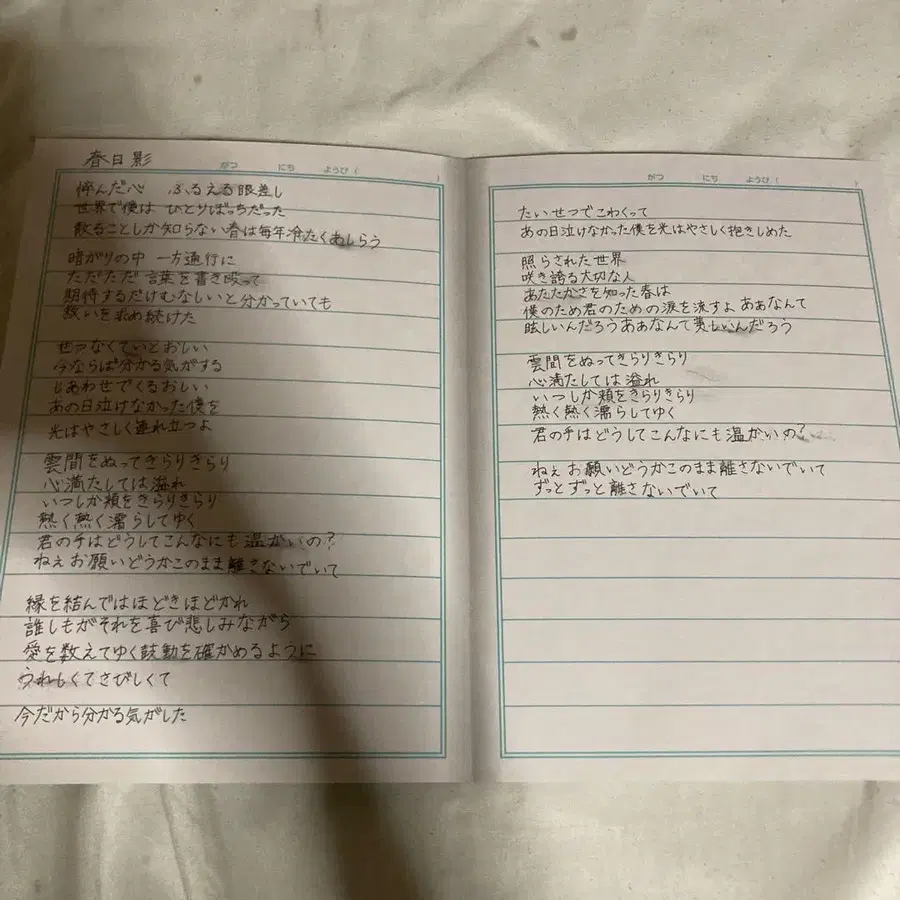 春日影
がつ にち ようび（ ）
悴んだ心 ふるえる眼差し
世界で僕は ひとりぼっちだった
散ることしか知らない春は毎年冷たくあしらう
暗がりの中 一方通行に
ただただ 言葉を書き殴って
期待するだけむなしいと分かっていても
救いを求め続けた
せつなくていとおしい
今ならば分かる気がする
しあわせでくるおしい
あの日泣けなかった僕を
光はやさしく連れ立つよ
雲間をぬってきらりきらり
心満たしては溢れ
いつしか頬をきらりきらり
熱く熱く濡らしてゆく
君の手はどうしてこんなにも温かいの?
ねぇお願いどうかこのまま離さないでいて
縁を結んではほどきほどかれ
誰しもがそれを喜び悲しみながら
愛を数えてゆく鼓動を確かめるように
うれしくてさびしくて
今だから分かる気がした
がつ にち ようび（ ）
たいせつでこわくって
あの日泣けなかった僕を光はやさしく抱きしめた
照らされた世界
咲き誇る大切な人
あたたかさを知った春は
僕のため君のための涙を流すよ あぁなんて
眩しいんだろうあぁなんて美しいんだろう
雲間をぬってきらりきらり
心満たしては溢れ
いつしか頬をきらりきらり
熱く熱く濡らしてゆく
君の手はどうしてこんなにも温かいの?
ねぇ お願いどうかこのまま離さないでいて
ずっとずっと離さないでいて